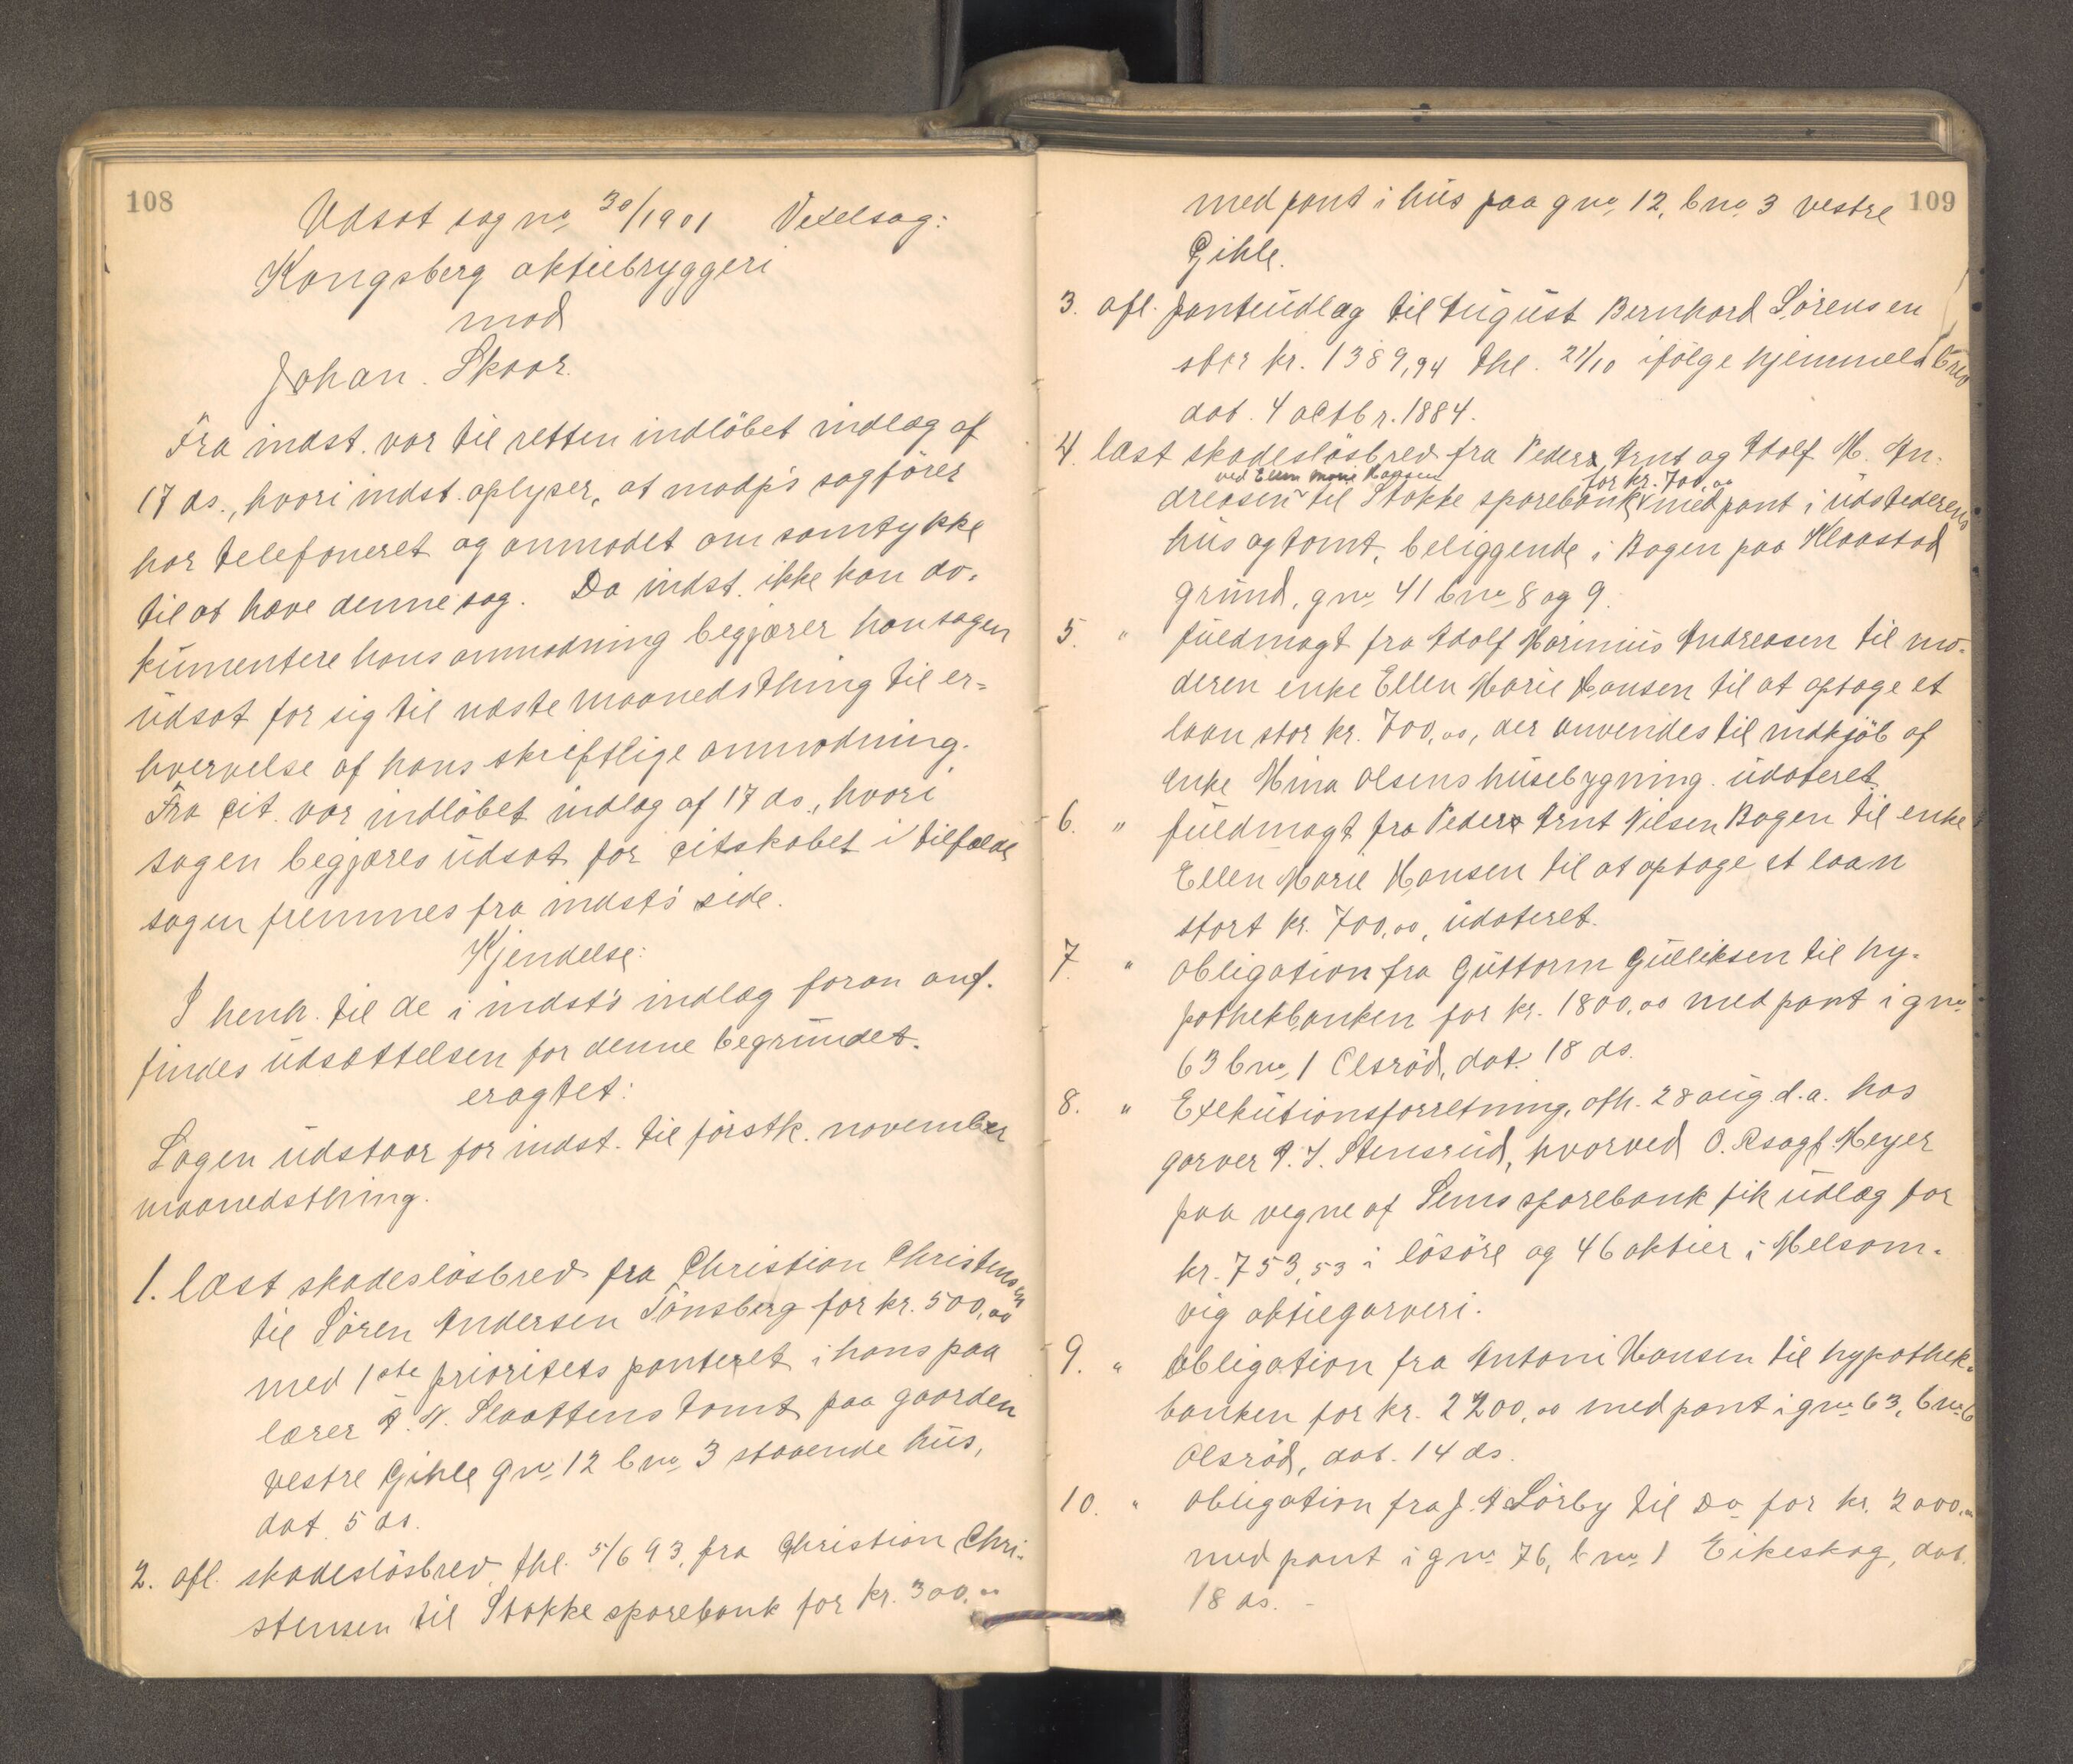 108
Udsat sag no 30/1901 Vexelsag:
Kongsberg aktiebryggeri
mod
Johan Skaar.
Fra indst. var til retten indløbet indlæg af
17 ds., hvori indst. oplyser, at modp's sagfører
har telefoneret og anmodet om samtykke
til at hæve denne sag. Da indst. ikke kan do-
kumentere hans anmodning begjærer han sagen
udsat for sig til næste maanedsthing til er-
hvervelse af hans skriftlige anmodning.
Fra cit. var indløbet indlæg af 17 ds., hvori
sagen begjæres udsat for citskabet i tilfælde
sagen fremmes fra indst's side.
Kjendelse:
I henh. til de i indst's indlæg foran anf.
findes udsættelsen for denne begrundet.
eragtet:
Sagen udstaar for indst. til førstk. november
maanedsthing.
1. læst skadesløsbrev fra Christian Christensen
til Søren Andersen Tønsberg for kr. 500,00
med 1ste prioritets panteret i hans paa
lærer A. N. Slaattens tomt paa gaarden
vestre Gihle gno 12 bno 3 staaende hus,
dat. 5 ds.
2. afl. skadesløsbrev, thl. 5/6 93, fra Christian Chri-
stensen til Stokke sparebank for kr. 300,00
109
med pant i hus paa gno 12, bno 3 vestre
Gihle.
3. afl. panteudlæg til August Bernhard Sørensen
stor kr. 1389,94 thl. 21/10 ifølge hjemmelsbrev
dat. 4 octbr. 1884.
4. læst skadesløsbrev fra Peder Arnt og Adolf M. An-
ved Ellen Marie Hansen for kr. 700,00
dreasen til Stokke sparebank med pant i udstederens
hus og tomt, beliggende i Bogen paa Klaastad
grund, gno 41 bno 8 og 9.
5. " fuldmagt fra Adolf Marinius Andreasen til mo-
deren enke Ellen Marie Hansen til at optage et
laan stor kr. 700,00, der anvendes til indkjøb af
enke Mina Olsens husebygning. udateret.
6. " fuldmagt fra Peder Arnt Nilsen Bogen til enke
Ellen Marie Hansen til at optage et laan
stort kr. 700,00, udateret.
7. " obligation fra Guttorm Gulliksen til hy-
pothekbanken for kr. 1800,00 med pant i gno
63 bno 1 Olsrød, dat. 18 ds.
8. " Exekutionsforretning, afh. 28 aug. d.a. hos
garver A. J. Stensrud, hvorved O.Rsagf. Meyer
paa vegne af Sems sparebank fik udlæg for
kr. 753,53 i løsøre og 46 aktier i Melsom-
vig aktiegarveri.
9. " obligation fra Antoni Hansen til hypothek-
banken for kr. 2200,00 med pant i gno 63, bno 6
Olsrød, dat. 14 ds.
10. " obligation fra J. A Sørby til Do for kr. 2000,00
med pant i gno 76, bno 1 Eikeskog, dat.
18 ds. -